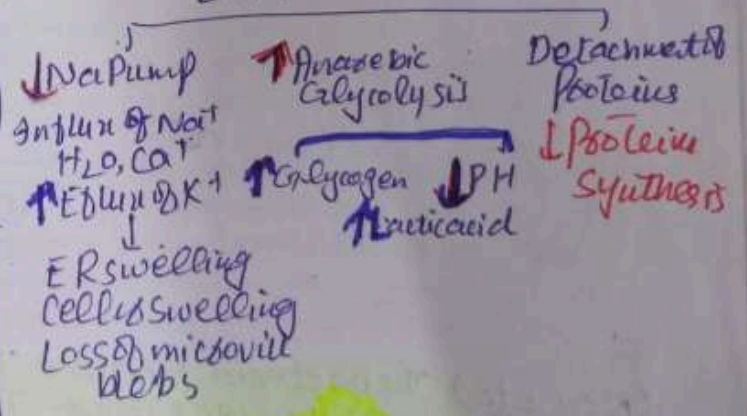 ↓Na Pump
Influx of Na+
H2O, Ca+
↑Efflux of K+
↓
ER swelling
Cellis swelling
Loss of microvill
blebs
↑Anarebic
Glycolysis
↑Glycogen ↓PH
↑Lacticacid
Detachment of
Proteins
↓Protein
Synthesis